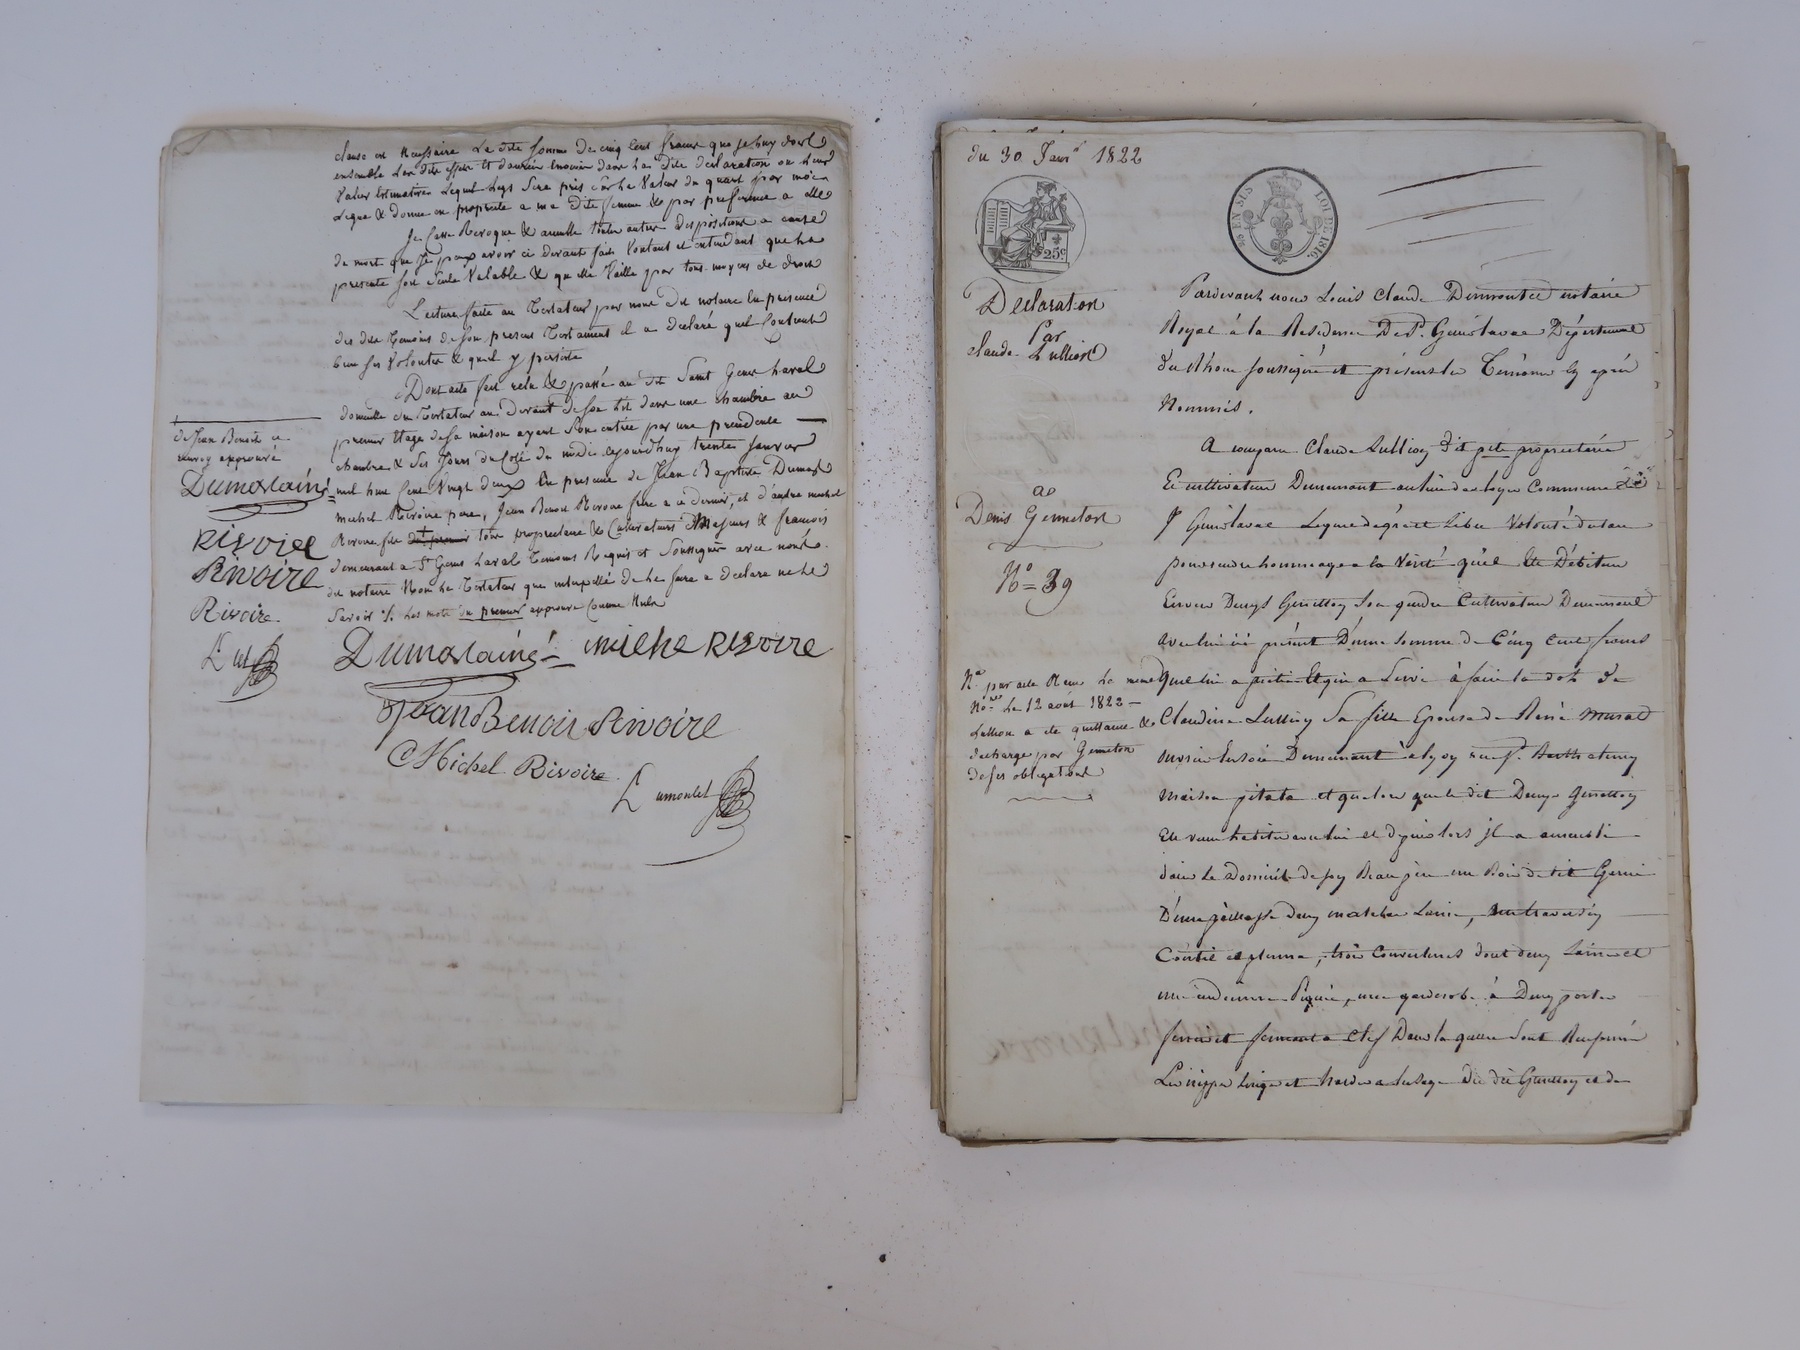 clause est necessaire la dite somme de cinq cent francs que je luy dois
ensemble les dits effets et danrées enoncés dans la dite declaration ou leur
valeur estimative lequel legs sera pris sur la valeur du quart par moi
legué & donné en proprieté a ma dite femme & par preference a elle
Je casse revoque & annulle toute autre dispositions a cause
de mort que je peux avoir ci devant fait voulant et entendant que la
presente soit seule valable & quelle vaille par tous moyens de droit
Lecture faite au testateur par nous dit notaire en presence
des dits temoins de son present testament il a declaré quil contient
bien ses volontés & quil y persiste
Dont acte fait relu & passé au dit Saint Genis Laval
domicille du testateur au devant de son lit dans une chambre au
premier etage de sa maison ayant son entrée par une precedente
chambre & ses jours du coté du midi aujourdhuy trente janvier
mil huit cent vingt deux en presence de Jean Baptiste Dumas
Michel Rivoire pere, Jean Benoit Rivoire frere a ce dernier, et d'autre Michel
Rivoire fils du premier tous proprietaires & cultivateurs majeurs & francois
demeurant a St Genis Laval temoins requis et soussignés avec nous
dit notaire non le testateur que interpellé de le faire a declaré ne le
savoir ./. les mots du premier approuvé comme nuls
de Jean Benoit ce
renvoy approuvé
Dumas lainé
Rivoire
Rivoire
Rivoire
Dumas lainé miche Rivoire
Jean Benoit Rivoire
Michel Rivoire
du 30 Janvr 1822
25c
EN SUS
LOI DE 1816.
Declaration
Par
claude Lullion
a
Denis Genneton
No = 39
Na par acte recu le meme
Nore le 12 août 1822 -
Lullion a ete quittancé &
decharge par Genneton
de ses obligations
Pardevant nous Louis Claude Dumontet notaire
Royal à la Residence De St. Genis laval Département
du Rhône soussigné et présents les Témoins cy après
Nommés.
A comparu Claude Lullion dit pite proprietaire
Et cultivateur Demeurant au lieu des loges Commune de
St Genis laval Lequel de gré et libre Volonté du tems
pour rendre hommage a la Vérité quil Est Débiteur
Envers Denys son gendre Cultivateur Demeurant
avec lui ici présent D'une somme de Cinq Cent francs
Que lui a pretée Et qui a Servi à faire la dot de
Claudine Lullion Sa fille Epouse de René
ouvrier en soie Demeurant à lyon rue St. Barthelemy
Maison et que lors que le dit Denys
Est venu habiter avec lui et depuis lors il a
dans le Domicile de son Beau père un Bois de lit Garni
D'une paillasse deux matelas laine, un traversin
Coutil et plume, trois Couvertures dont deux laine et
une indienne Piquée, une garderobe à Deux portes
ferrée et fermant a Clef Dans laquelle sont Renfermés
Les nippes linges et hardes a lusage du dit et de